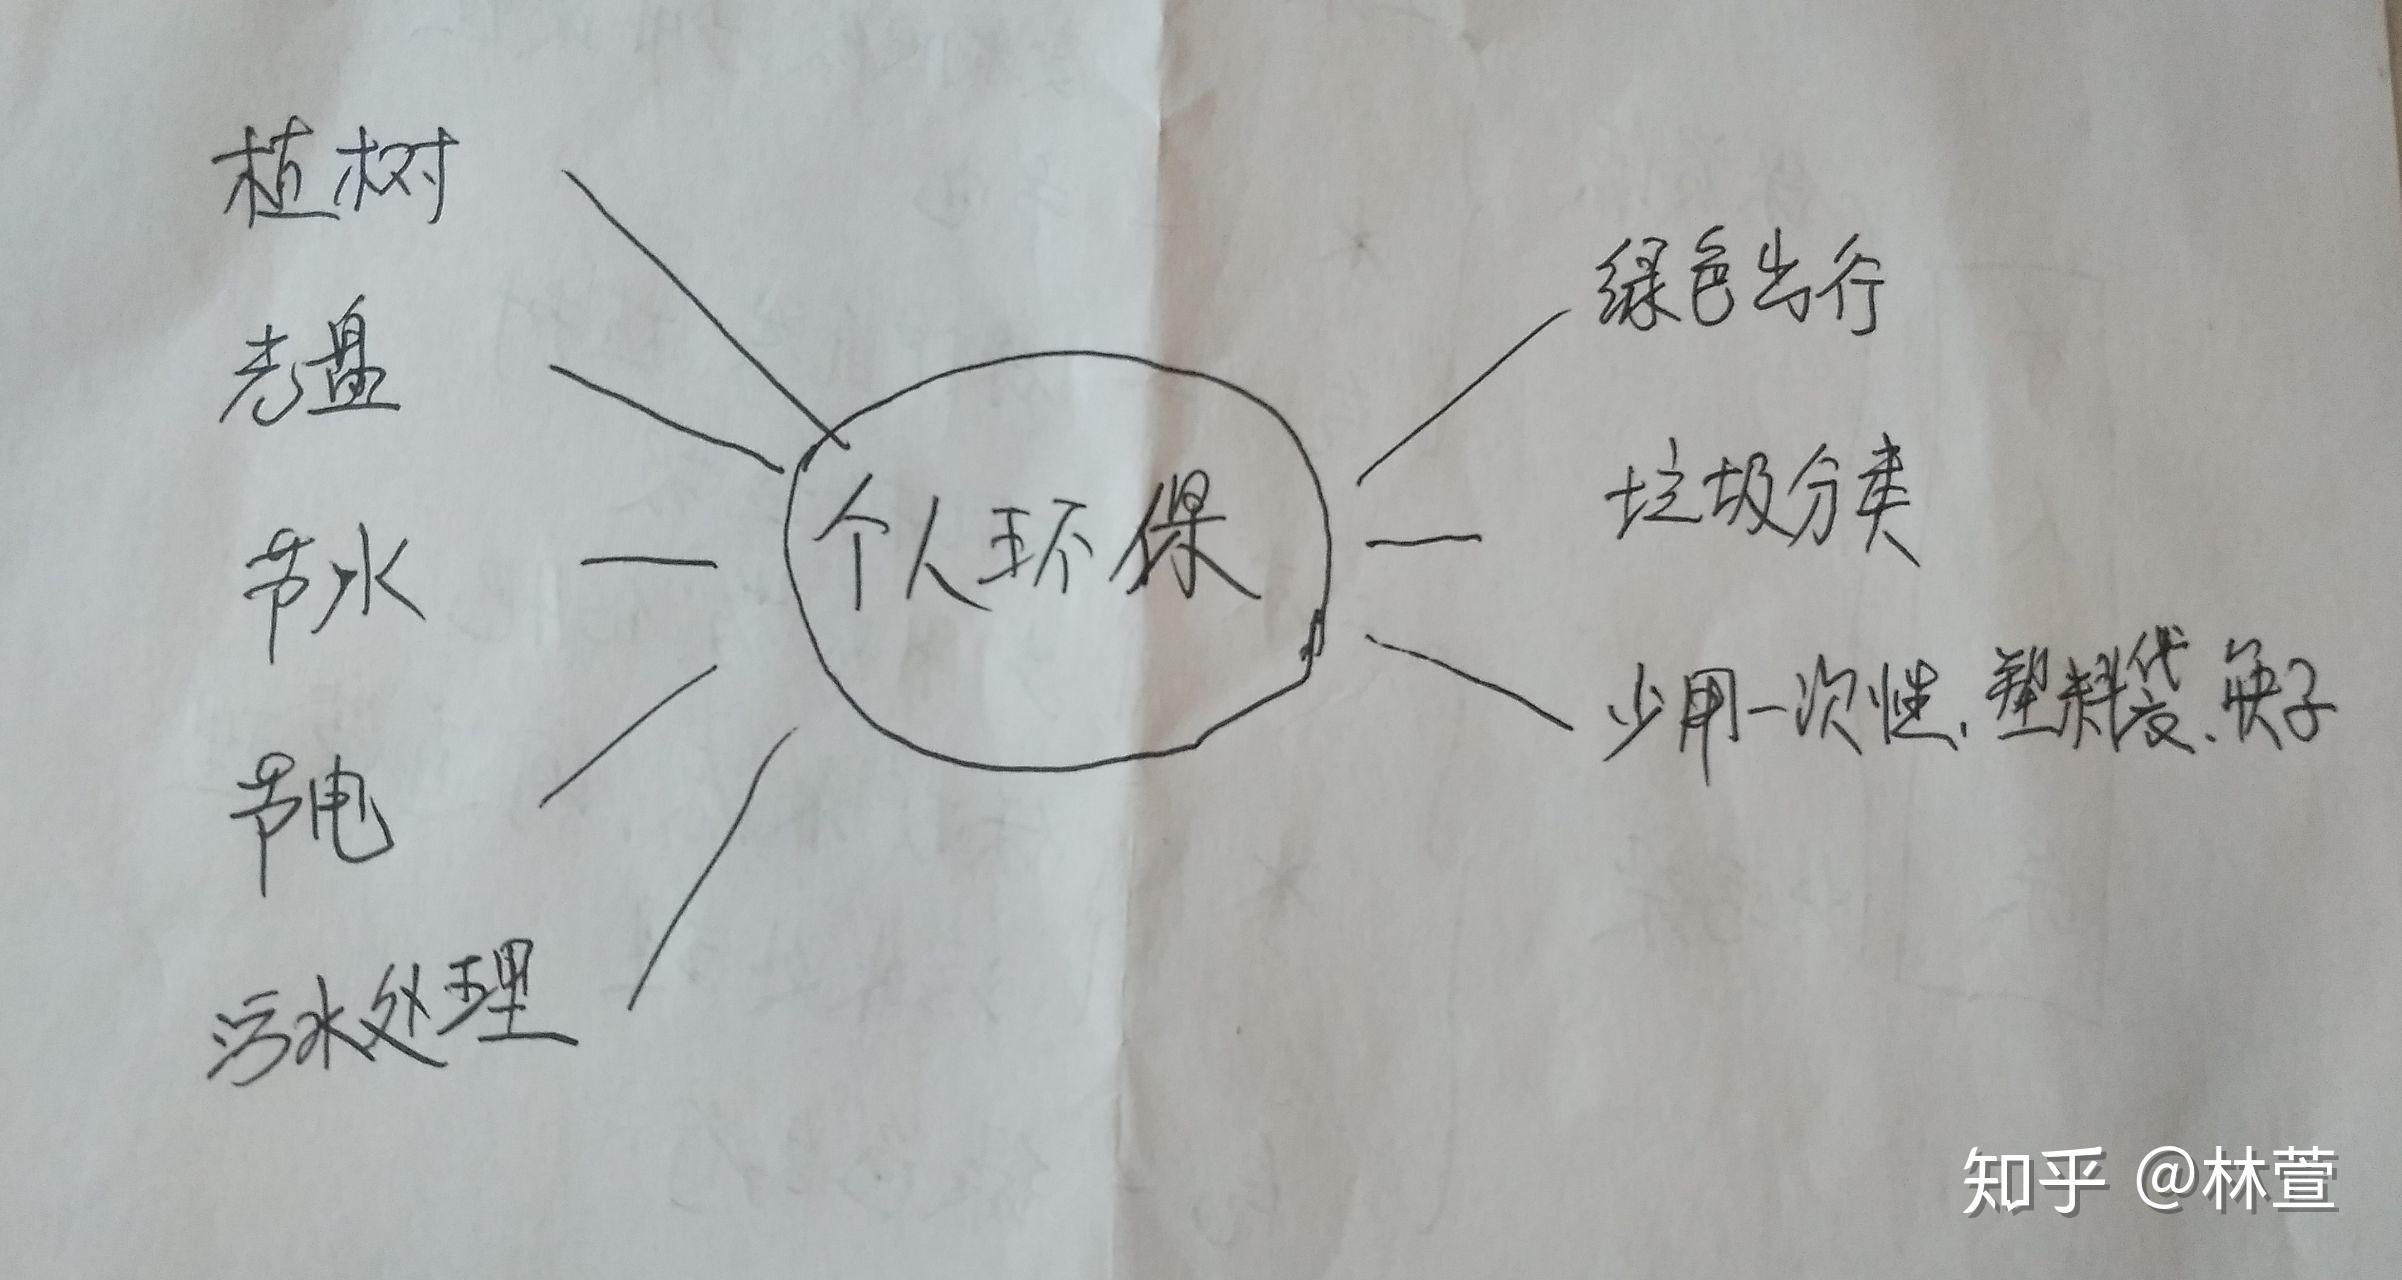 植树
光盘
节水
节电
污水处理
个人环保
绿色出行
垃圾分类
少用一次性、塑料袋、筷子
知乎 @林萱